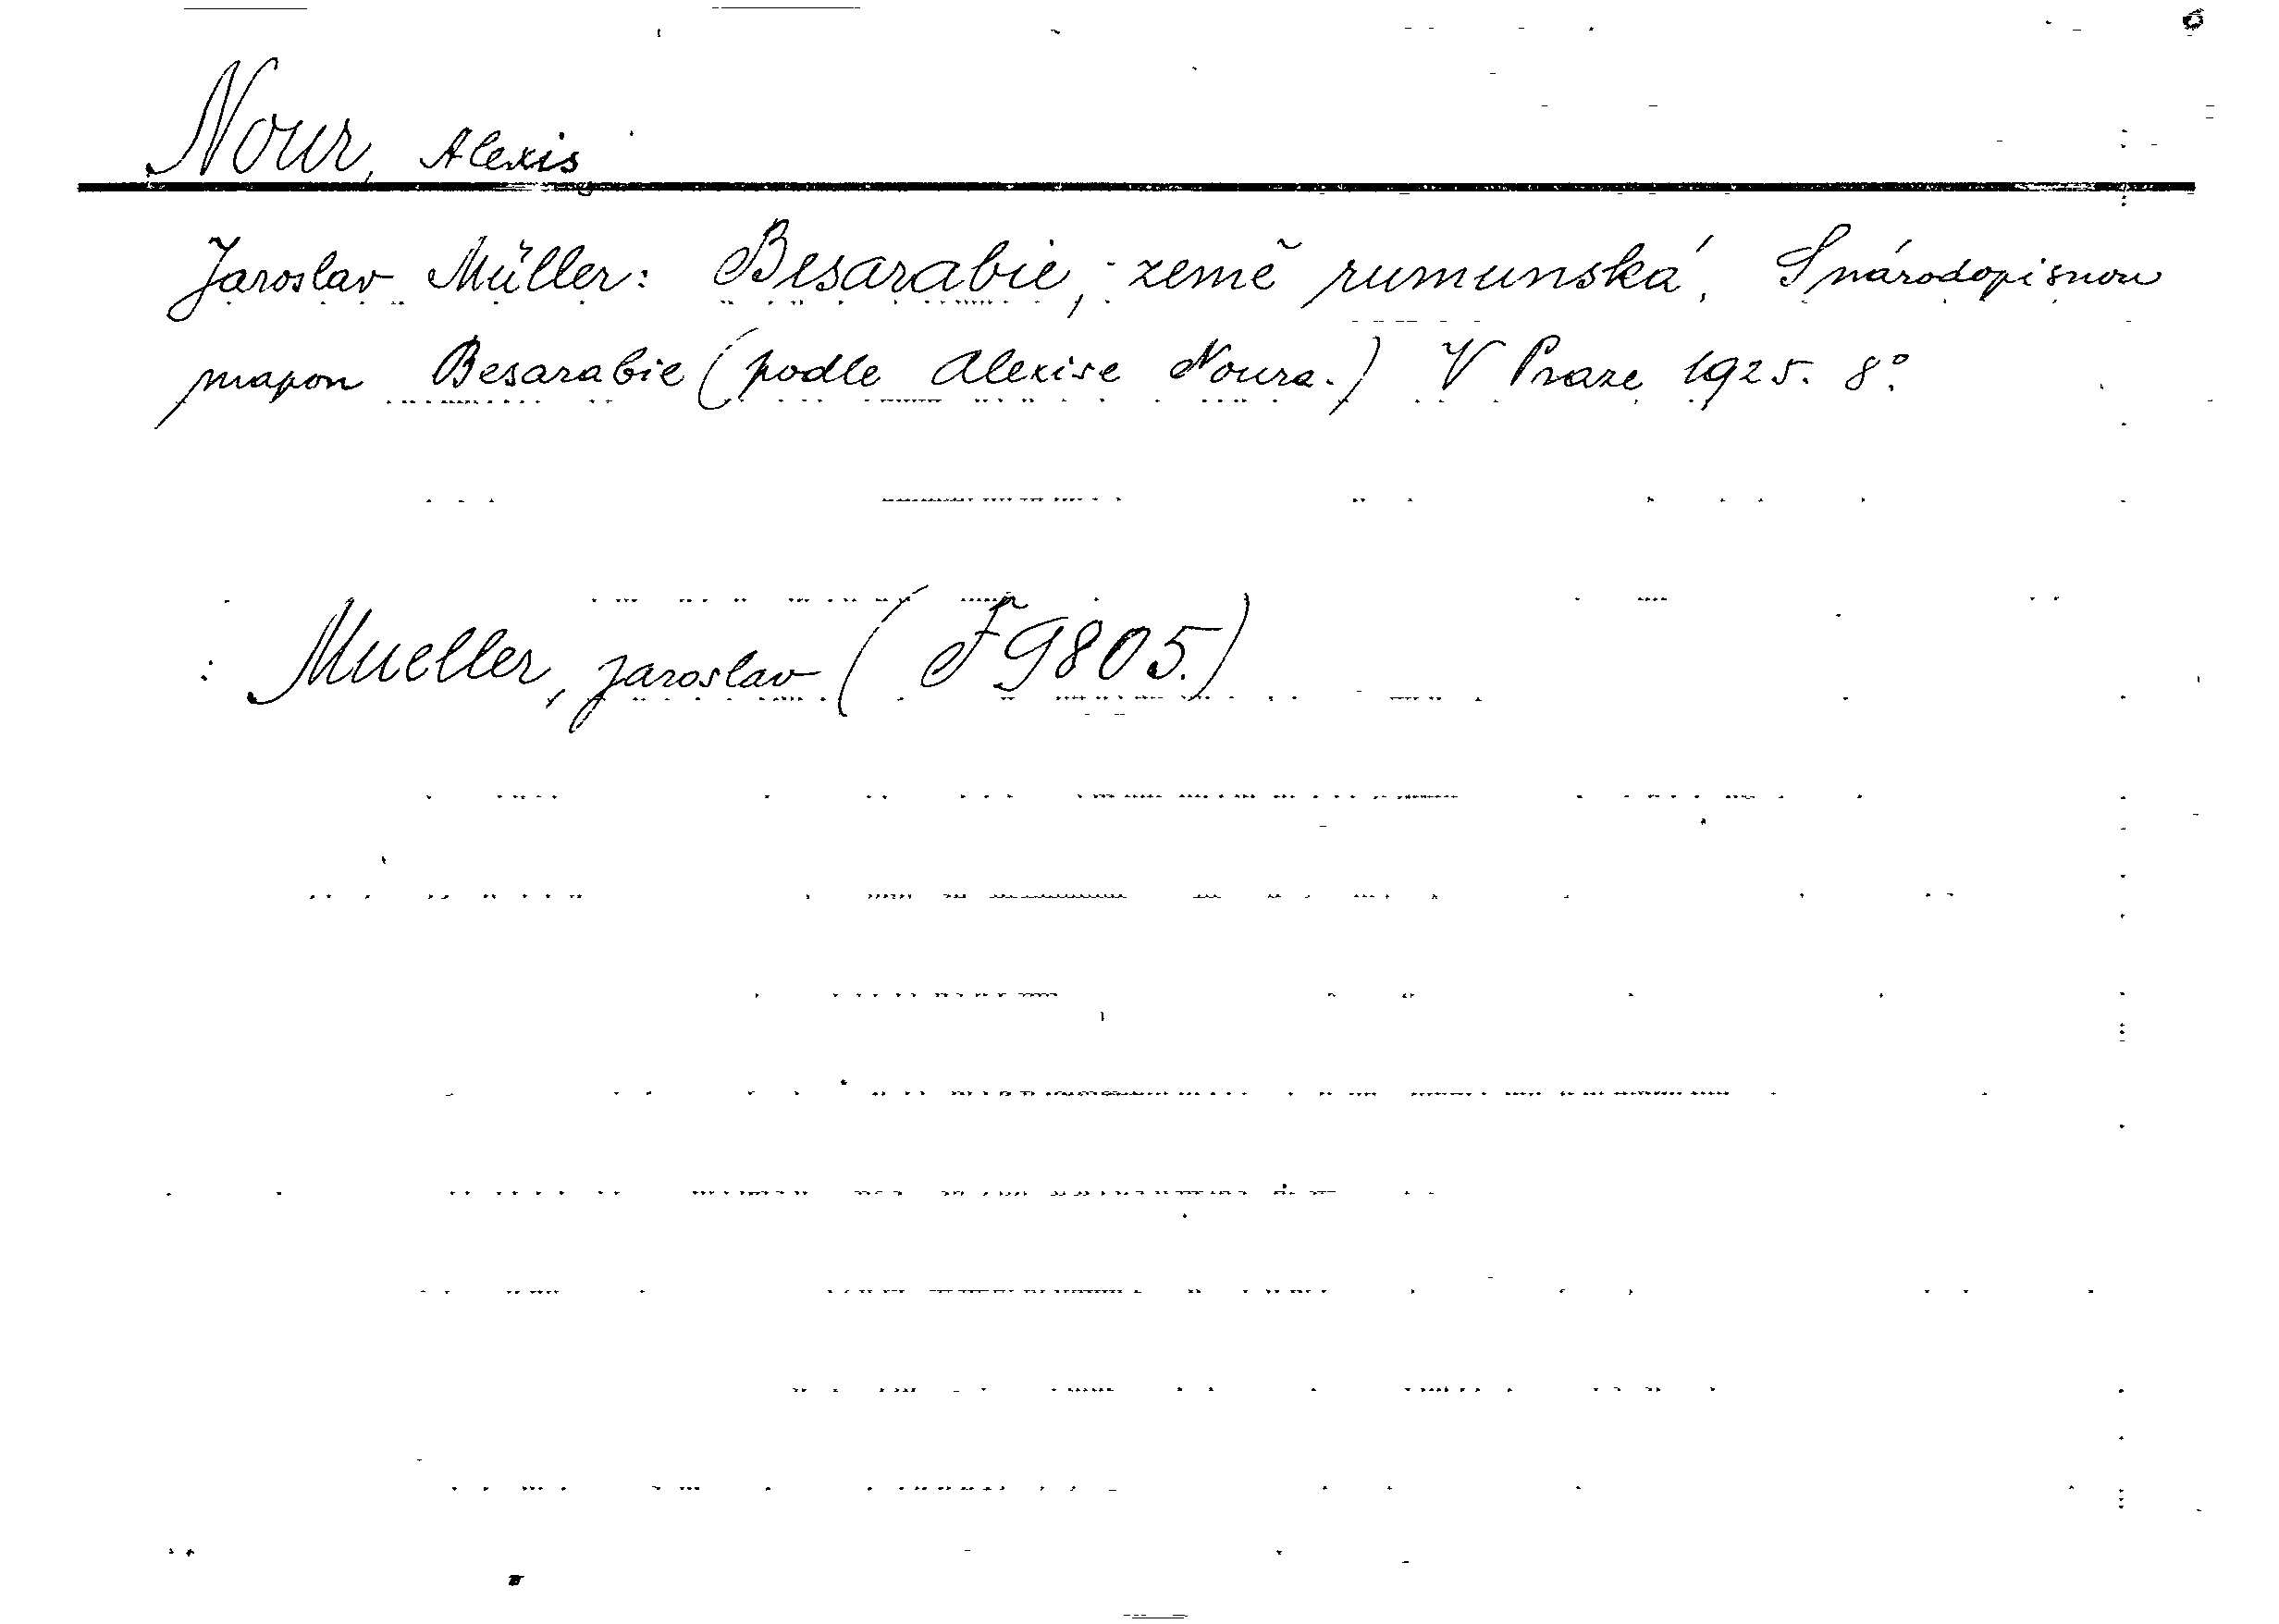 Nour, Alexis
Jaroslav Müller: Besarabie, - země rumunská. S národopisnou
mapou Besarabie (podle Alexise Noura.) V Praze 1925. 8°.
: Mueller, Jaroslav ( F 9805.)